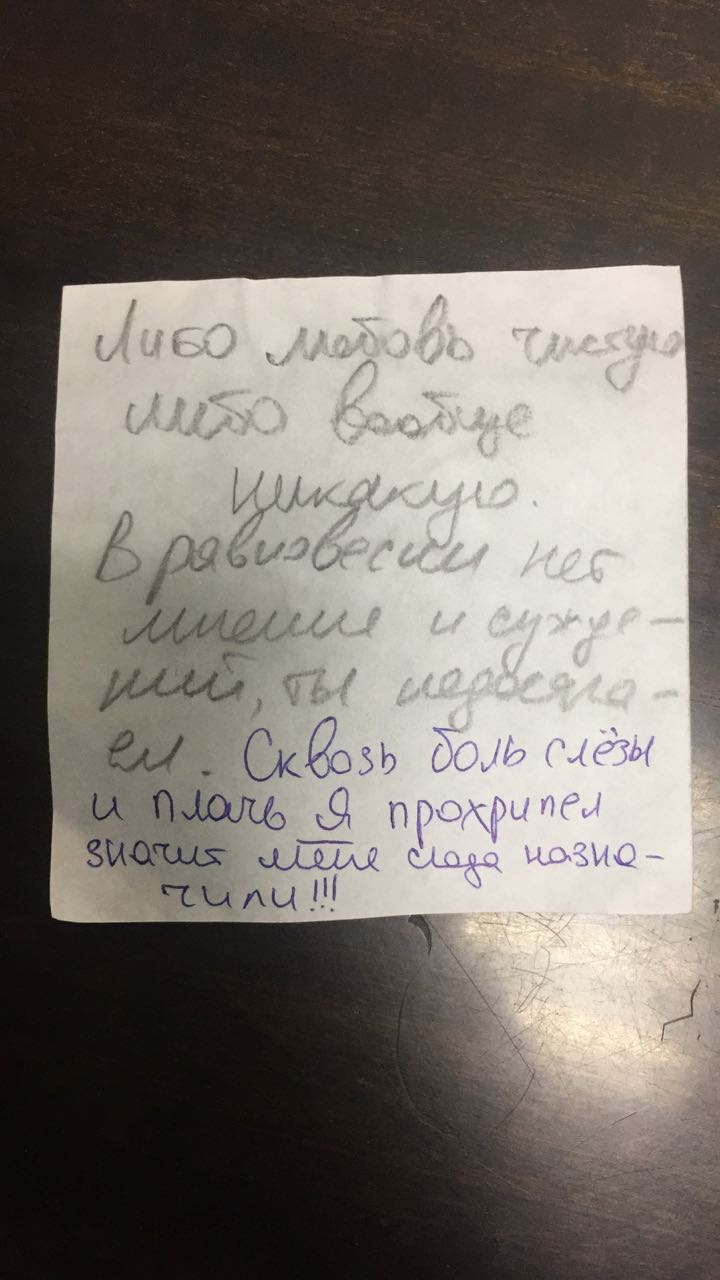 Либо любовь чистую
либо вообще
никакую.
В равновесии нет
мнение и сужде-
ний, ты недосяга-
ем. Сквозь боль слёзы
и плачь Я прохрипел
значит меня сюда назна-
чили!!!